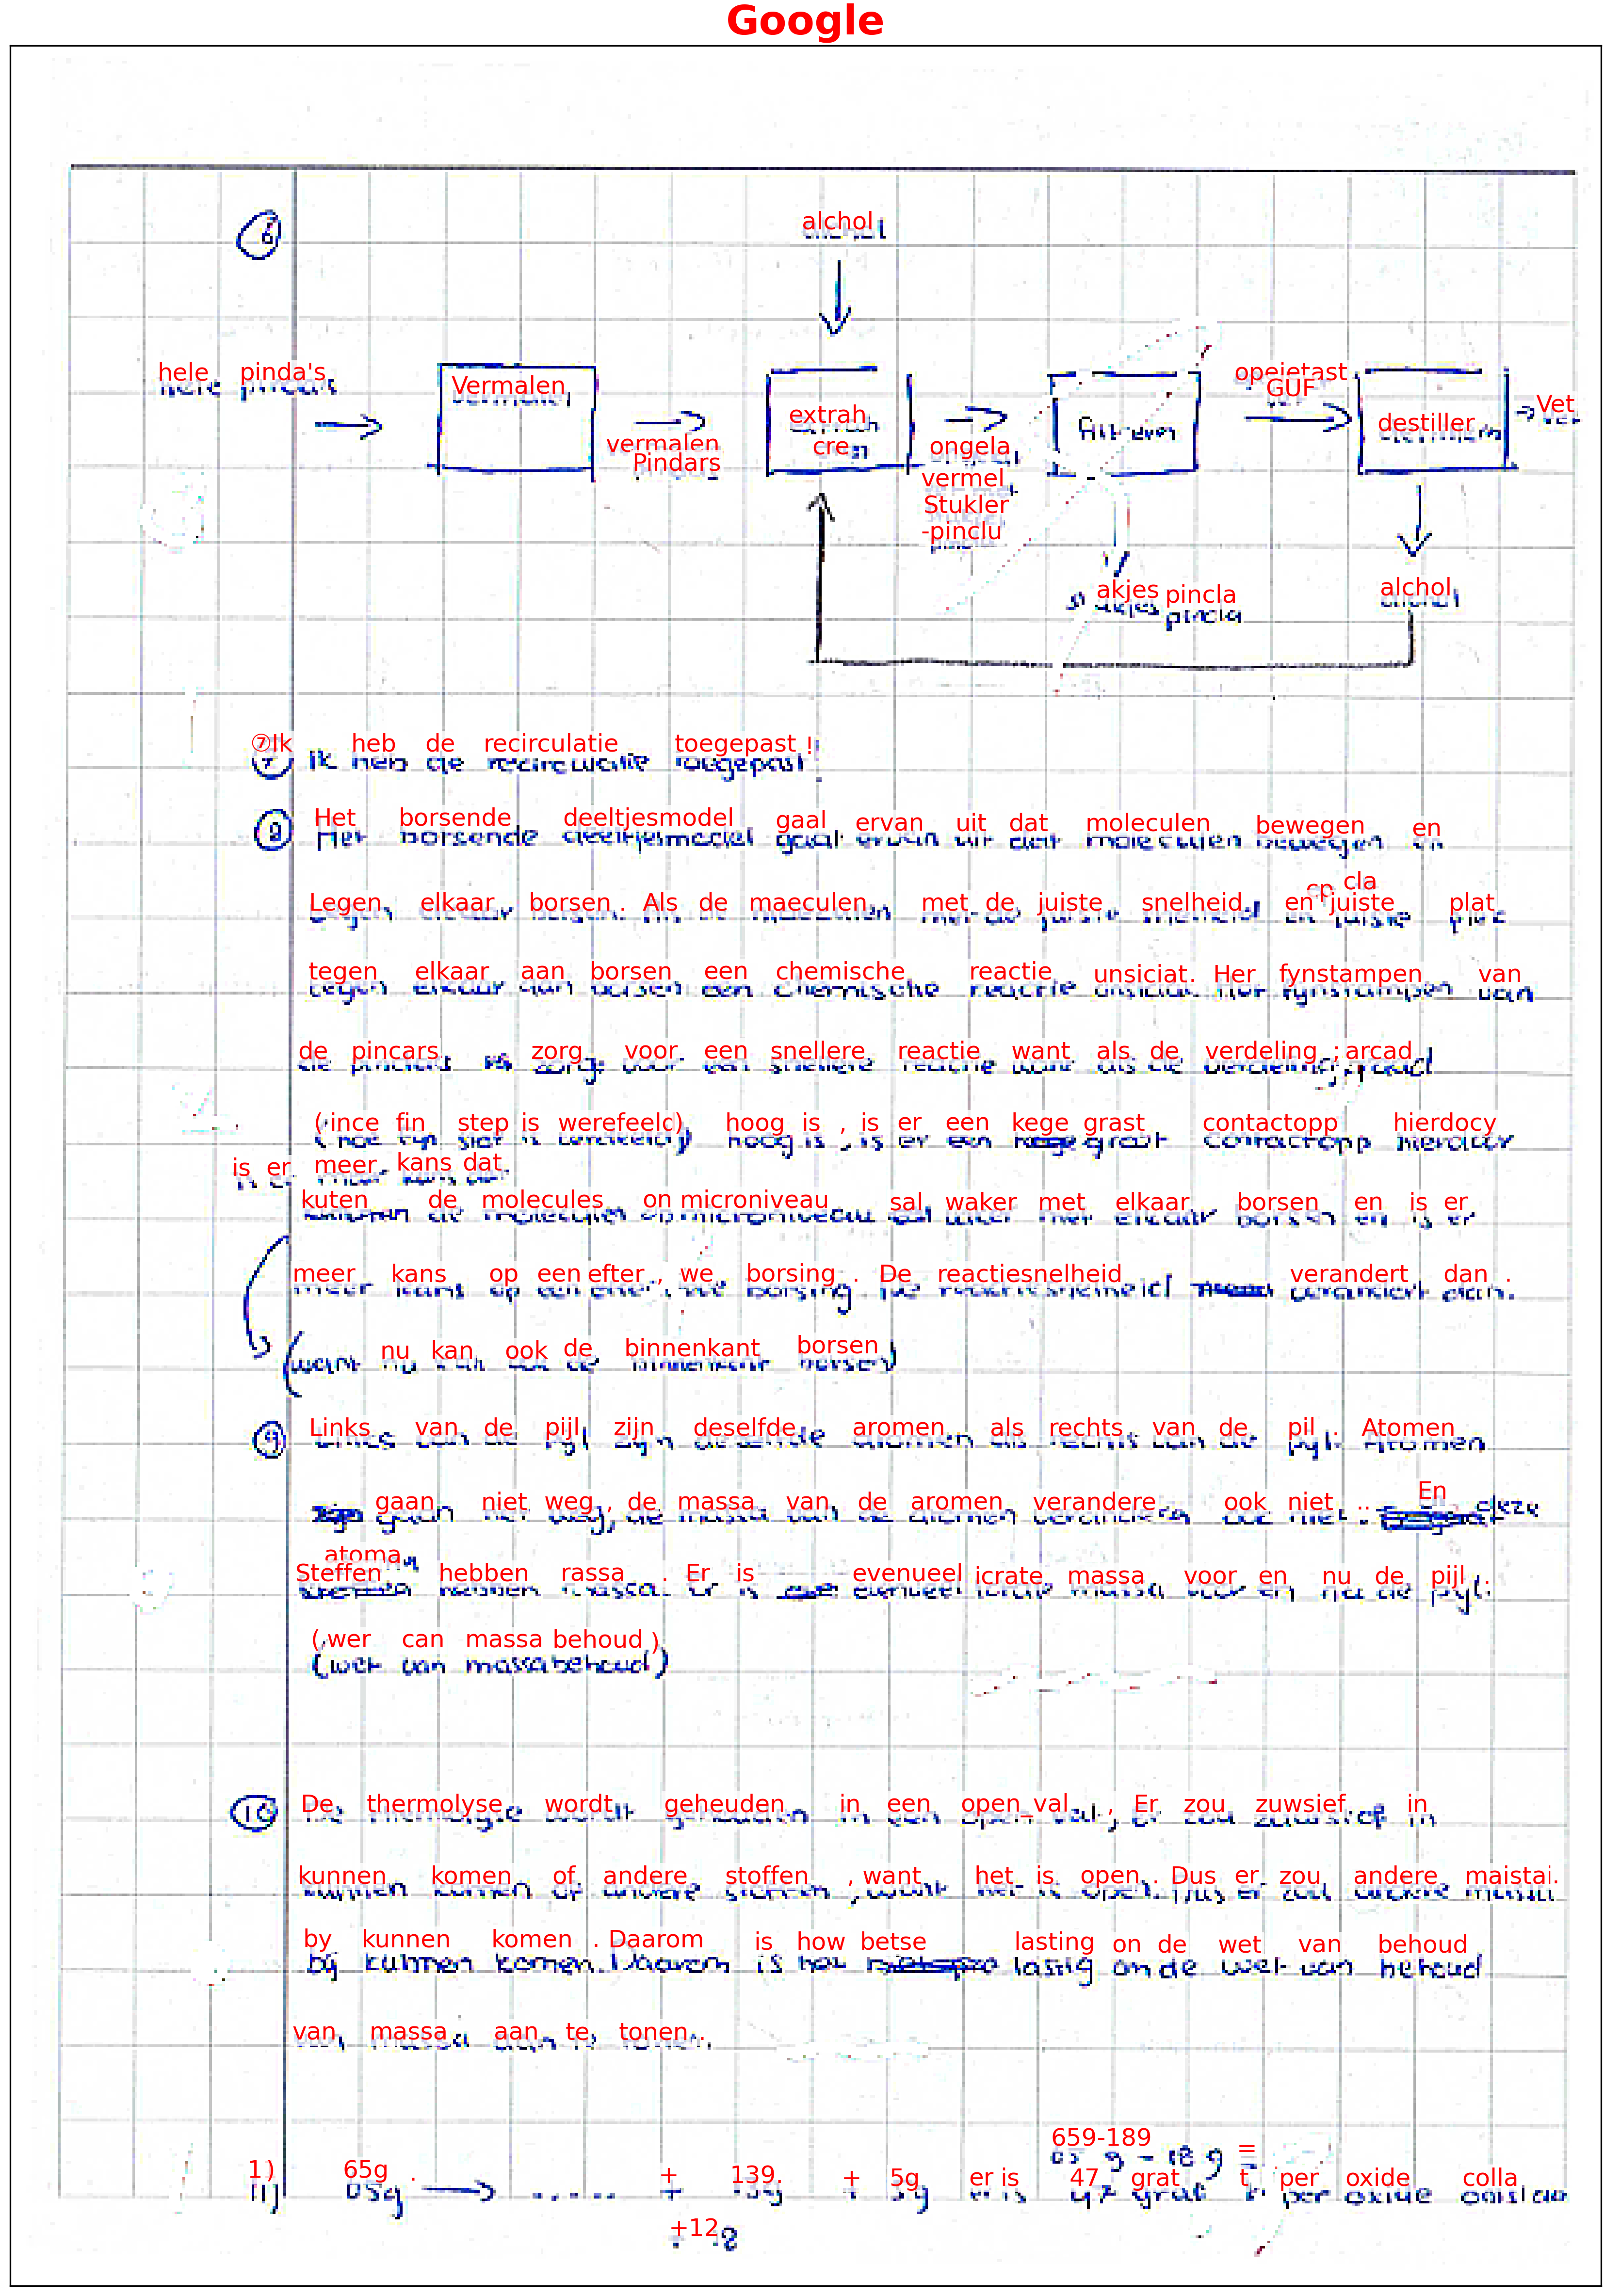 Google
6
alchol
hele pinda's
Vermalen
vermalen
Pindars
extrah
cre
ongela
vermel
Stukler
-pinclu
filtreren
opeietast
GUF
destiller
Vet
akjes pincla
alchol
⑦Ik heb de recirculatie toegepast !
8 Het borsende deeltjesmodel gaal ervan uit dat moleculen bewegen en
cp cla
Legen elkaar borsen . Als de maeculen met de juiste snelheid en juiste plat
tegen elkaar aan borsen een chemische reactie unsiciat. Her fynstampen van
de pincars zorg voor een snellere reactie want als de verdeling ; arcad
( ince fin step is werefeelc) hoog is , is er een kege grast contactopp hierdocy
is er meer kans dat
kuten de molecules on microniveau sal waker met elkaar borsen en is er
meer kans op een efter , we borsing . De reactiesnelheid verandert dan .
(want nu kan ook de binnenkant borsen)
9 Links van de pijl zijn deselfde aromen als rechts van de pil . Atomen
gaan niet weg , de massa van de aromen verandere ook niet .. En deze
atoma
Steffen hebben rassa . Er is evenueel icrate massa voor en nu de pijl .
( wer can massa behoud )
10 De thermolyse wordt geheuden in een open val , Er zou zuwsief in
kunnen komen of andere stoffen , want het is open . Dus er zou andere maistai.
by kunnen komen . Daarom is how betse lasting on de wet van behoud
van massa aan te tonen .
659-189 =
1) 65g . + 139. + 5g er is 47 grat t per oxide colla
+12